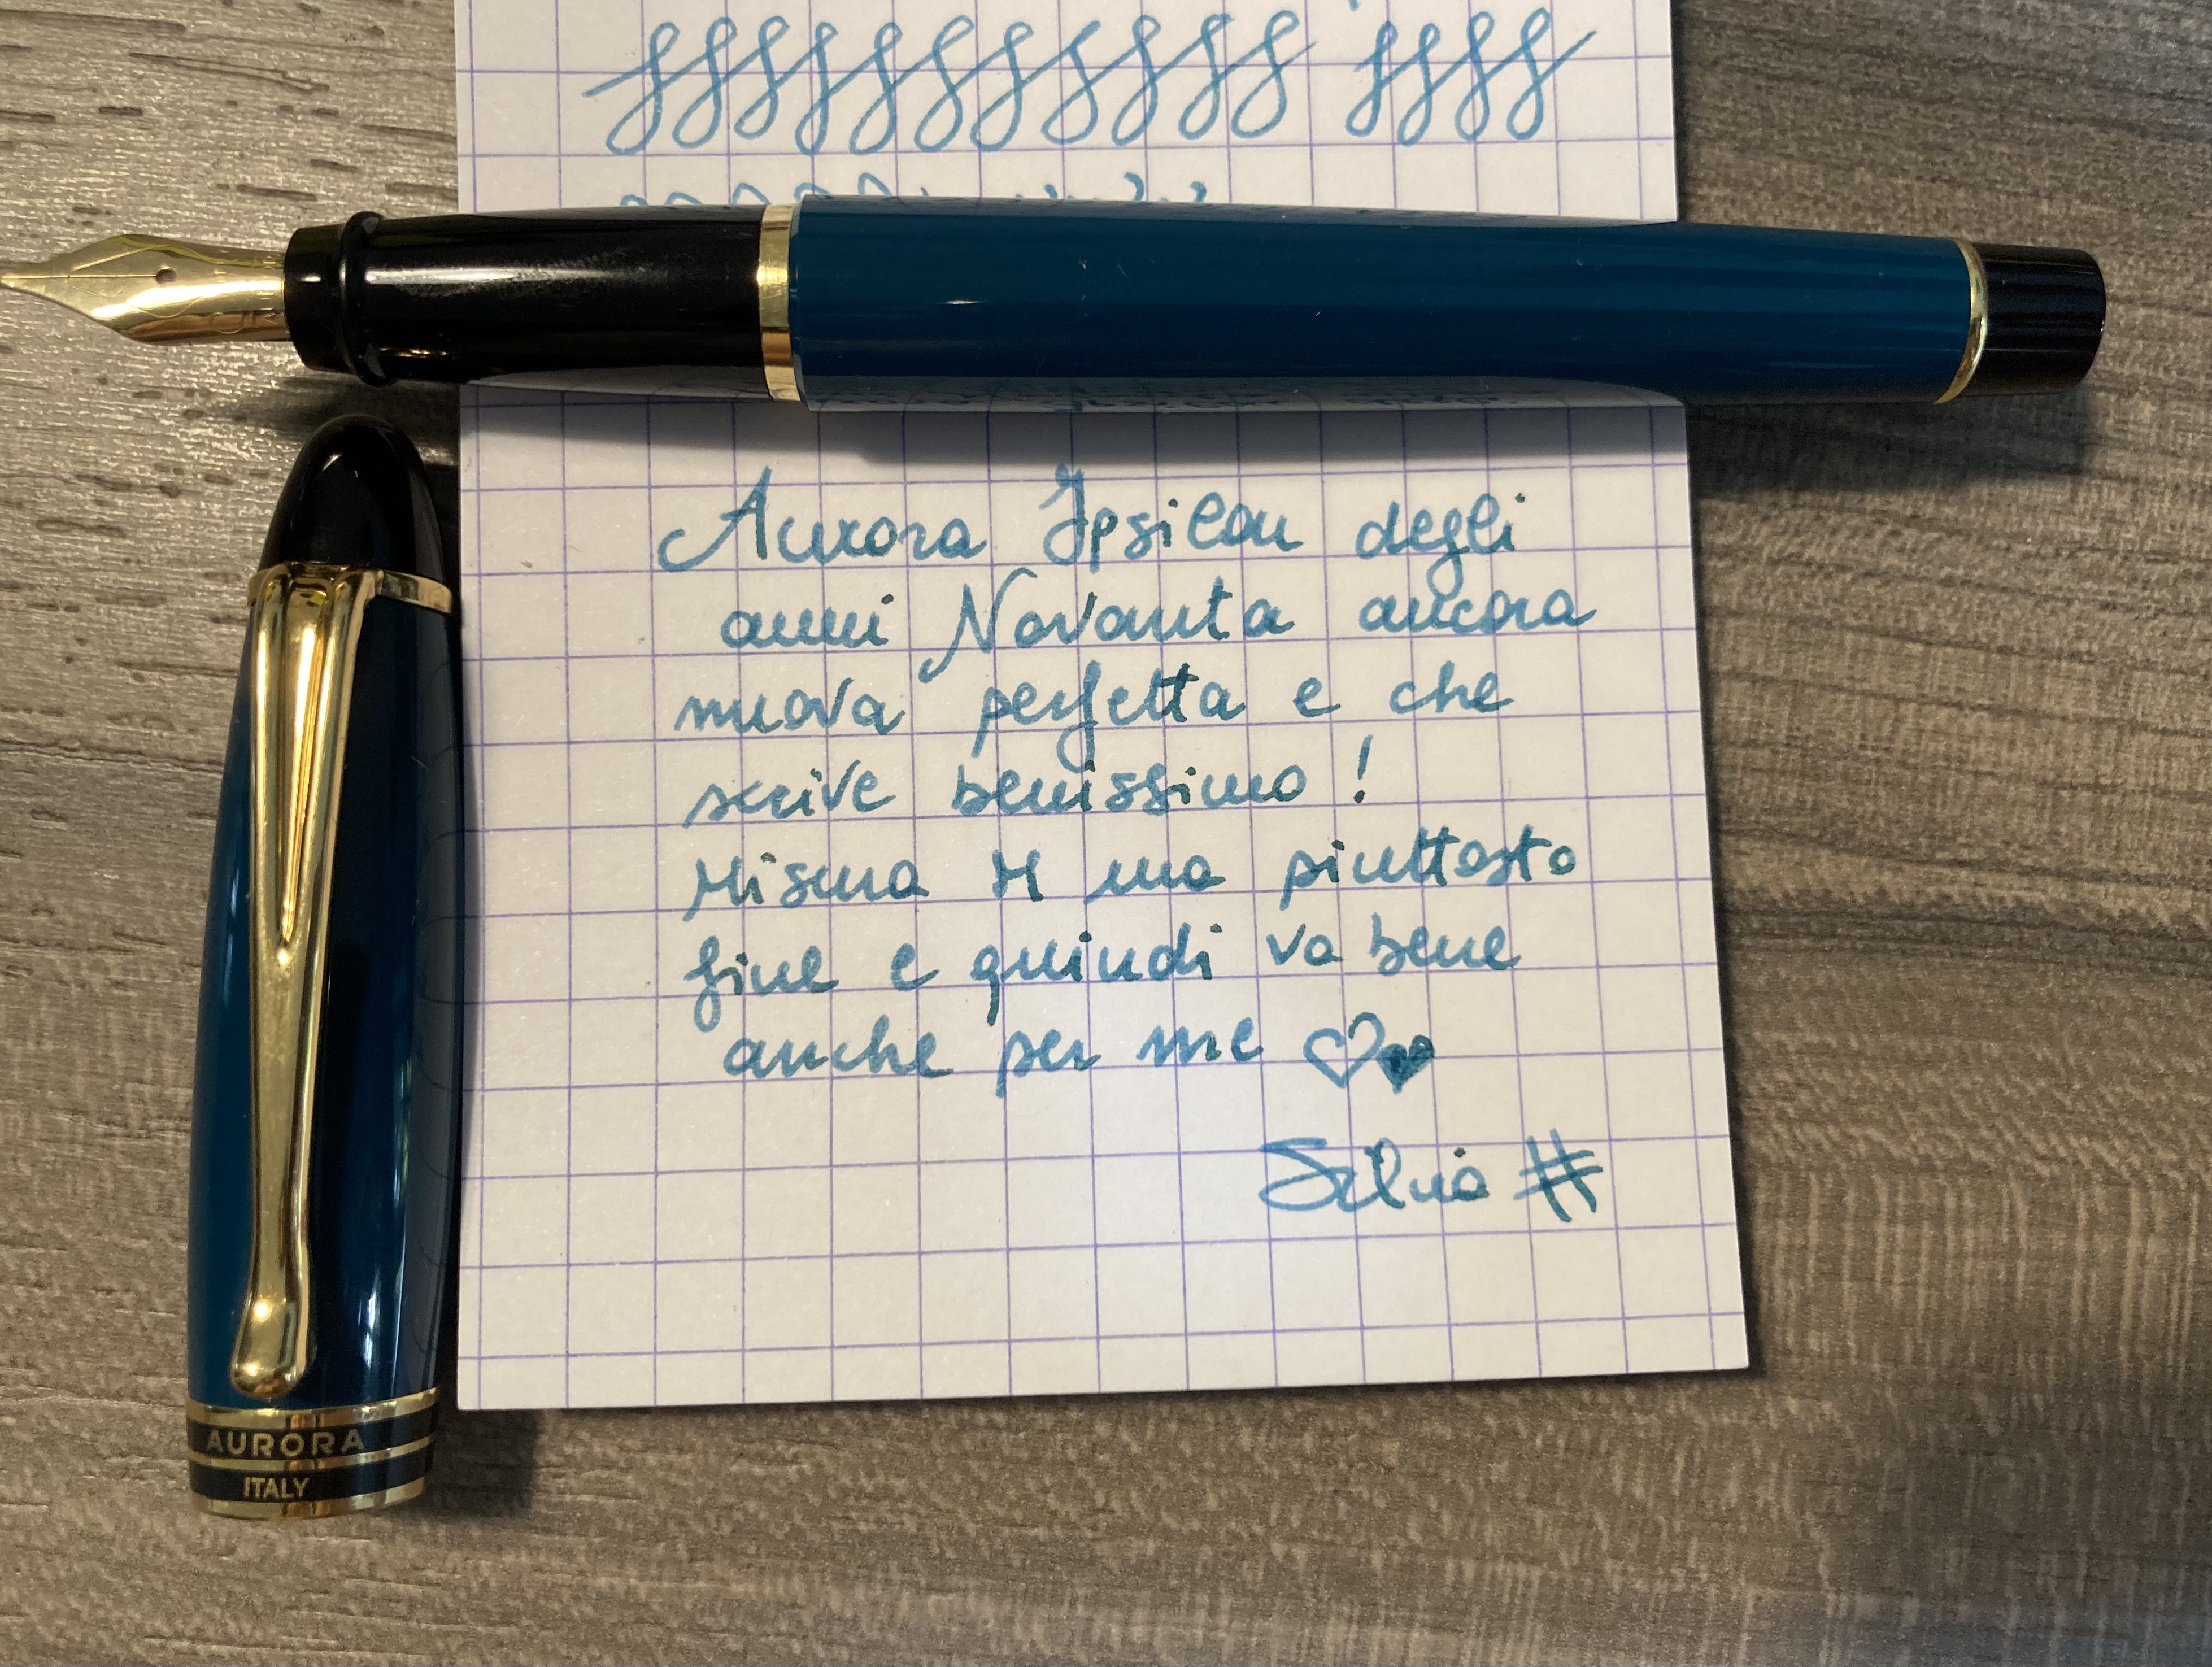 Aurora Ipsilon degli
anni Novanta ancora
nuova perfetta e che
scrive benissimo!
Misura M ma piuttosto
fine e quindi va bene
anche per me ♡♥
Silvia #
AURORA
ITALY